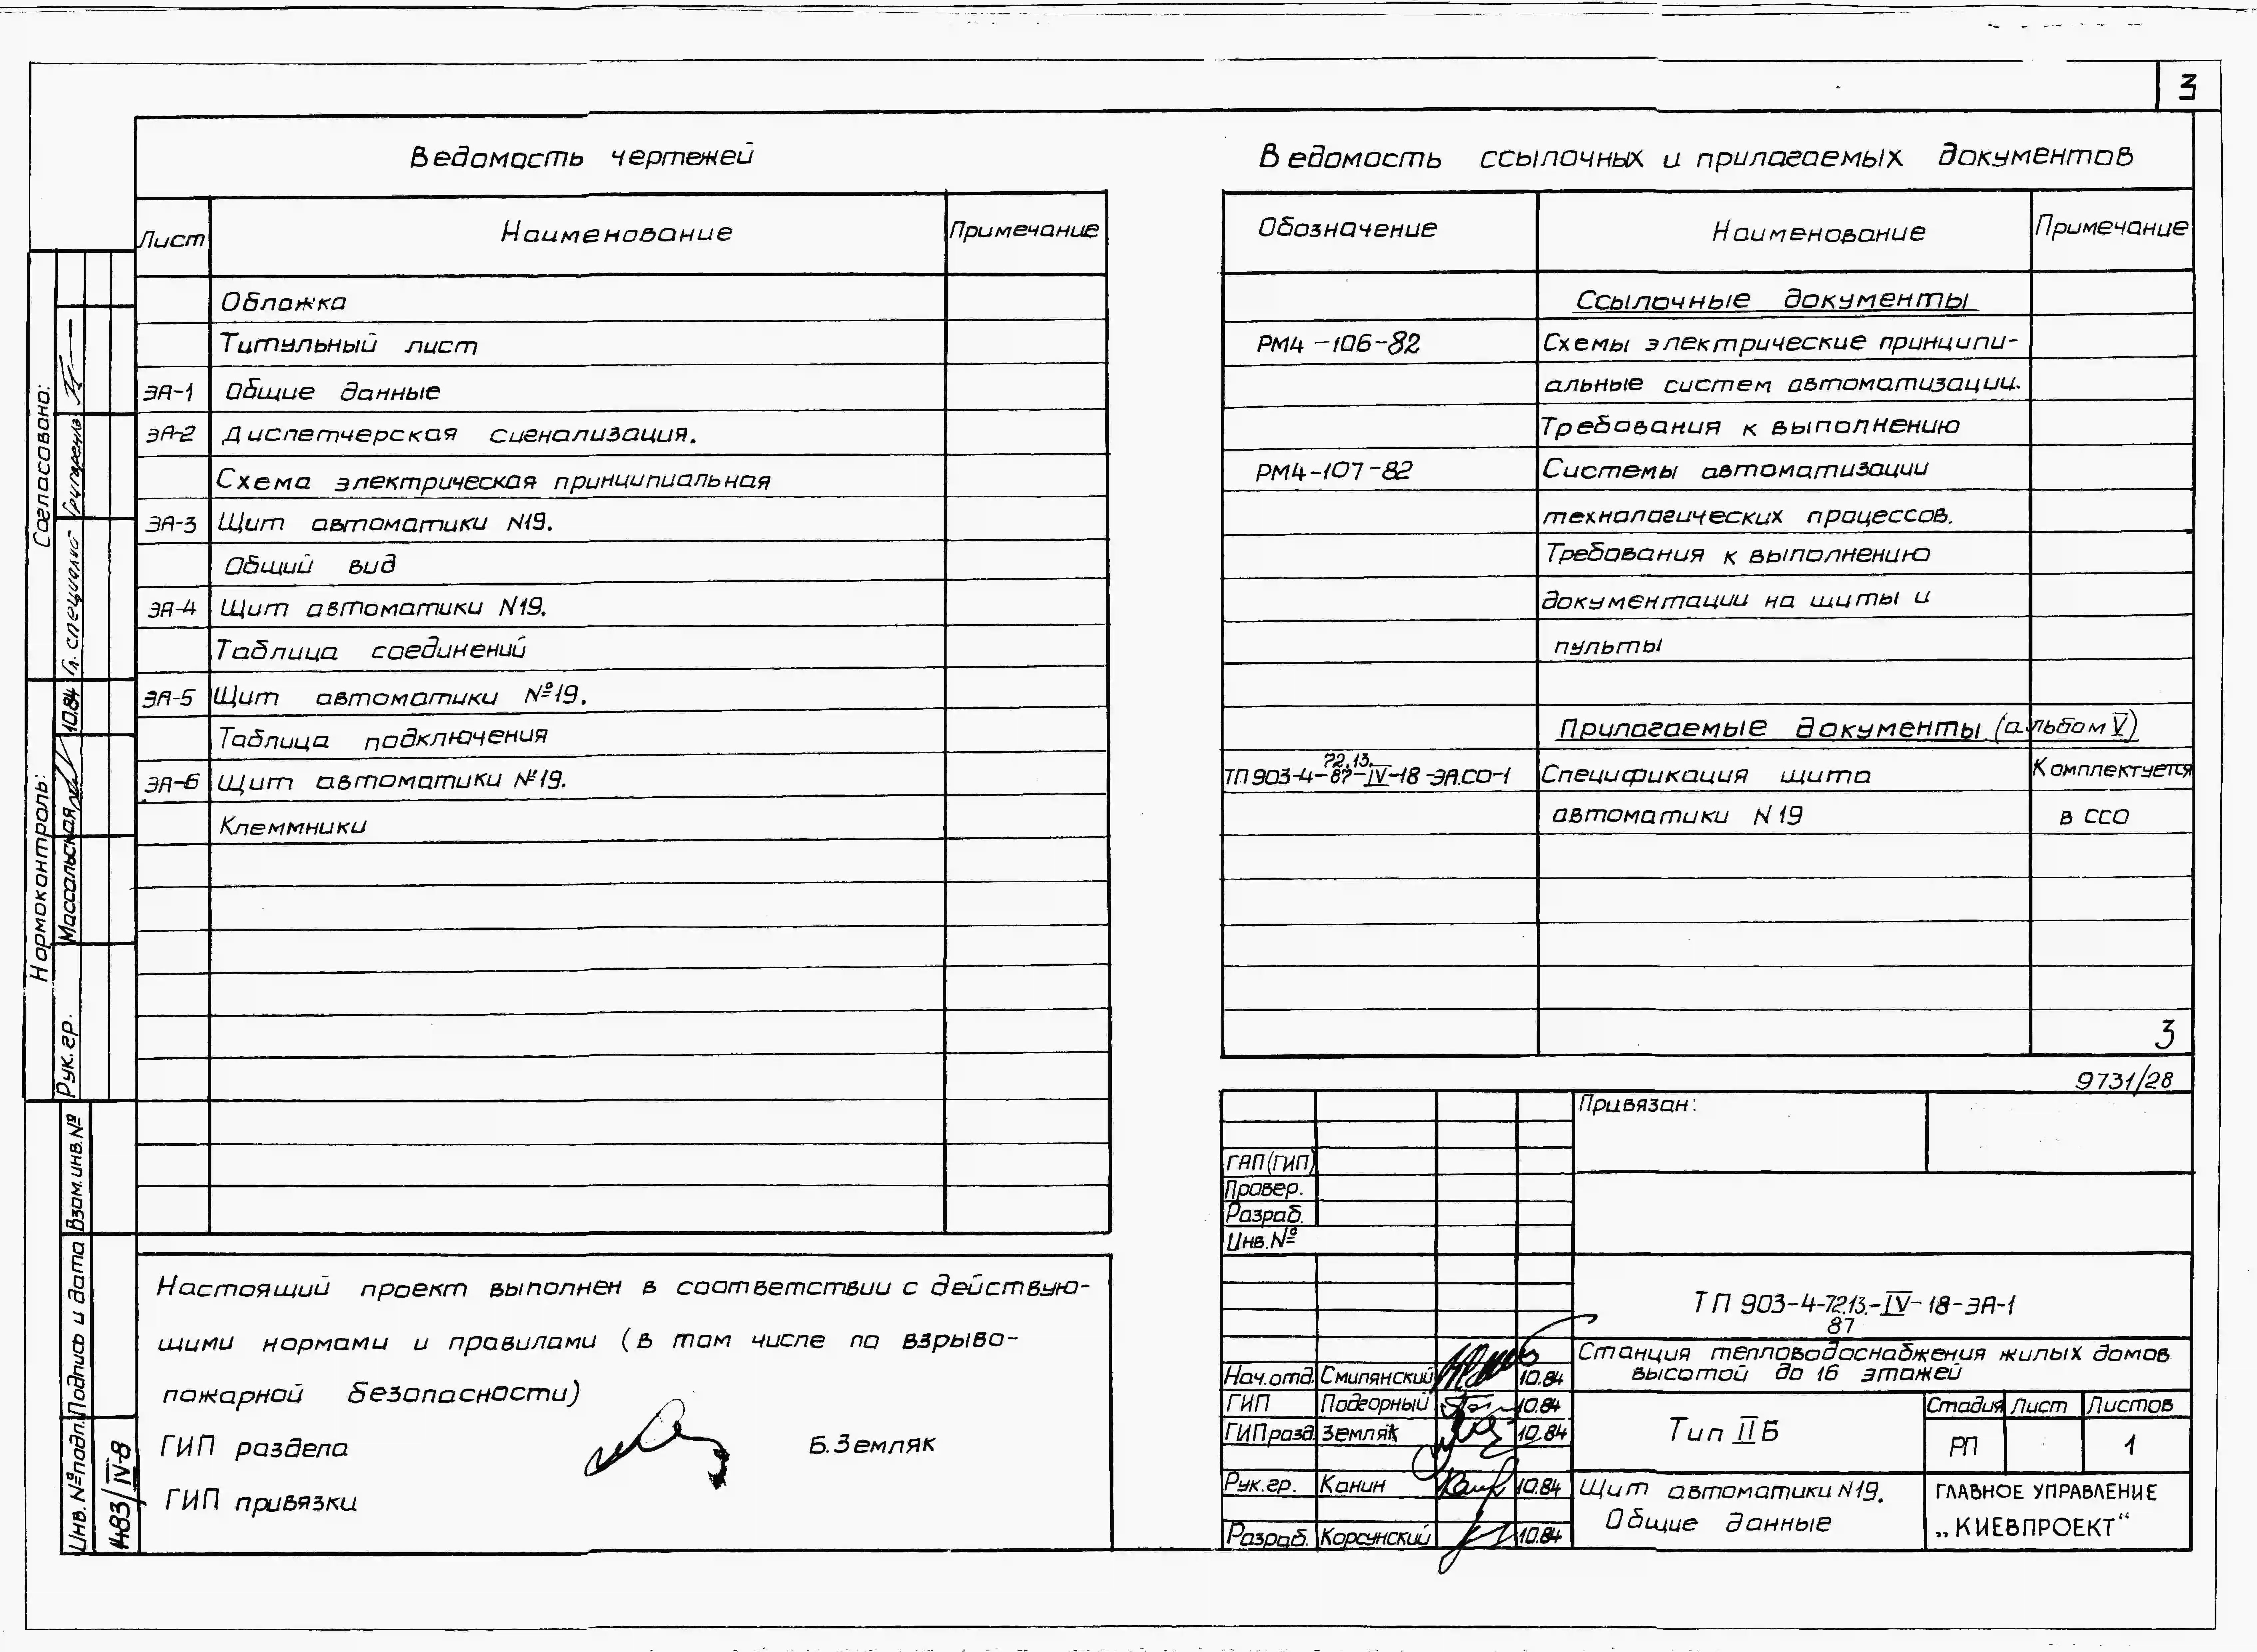 3
Ведомость чертежей
Лист Наименование Примечание
Обложка
Титульный лист
ЭА-1 Общие данные
ЭА-2 Диспетчерская сигнализация.
Схема электрическая принципиальная
ЭА-3 Щит автоматики N19.
Общий вид
ЭА-4 Щит автоматики N19.
Таблица соединений
ЭА-5 Щит автоматики №19.
Таблица подключения
ЭА-6 Щит автоматики №19.
Клеммники
Ведомость ссылочных и прилагаемых документов
Обозначение Наименование Примечание
Ссылочные документы
РМ4-106-82 Схемы электрические принципи-
альные систем автоматизации.
Требования к выполнению
РМ4-107-82 Системы автоматизации
технологических процессов.
Требования к выполнению
документации на щиты и
пульты
Прилагаемые документы (альбом V)
72.13.
ТП903-4-87-IV-18-ЭА.СО-1 Спецификация щита Комплектуется
автоматики N19 в ССО
3
9731/28
Настоящий проект выполнен в соответствии с действую-
щими нормами и правилами (в том числе по взрыво-
пожарной безопасности)
ГИП раздела Б.Земляк
ГИП привязки
Привязан:
ГАП(ГИП)
Провер.
Разраб.
Инв.№
ТП 903-4-72.13.-IV-18-ЭА-1
87
Станция тепловодоснабжения жилых домов
высотой до 16 этажей
Нач.отд. Смилянский 10.84
ГИП Подгорный 10.84
ГИПразд. Земляк 10.84
Рук.гр. Канин 10.84
Разраб. Корсунский 10.84
Тип IIБ
Стадия Лист Листов
РП 1
Щит автоматики N19.
Общие данные
ГЛАВНОЕ УПРАВЛЕНИЕ
„КИЕВПРОЕКТ“
Согласовано:
Гл. специалист Григоренко
Нормоконтроль:
Рук.гр. Массальская 10.84
Взам.инв.№
Подпись и дата
Инв.№подл.
1483/IV-8